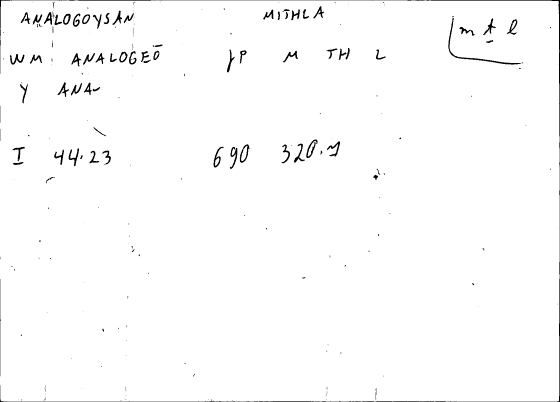 ANALOGOYSAN MITHLA
m t l
WM ANALOGEŌ JP M TH L
Y ANA-
I 44.23 690 320.1